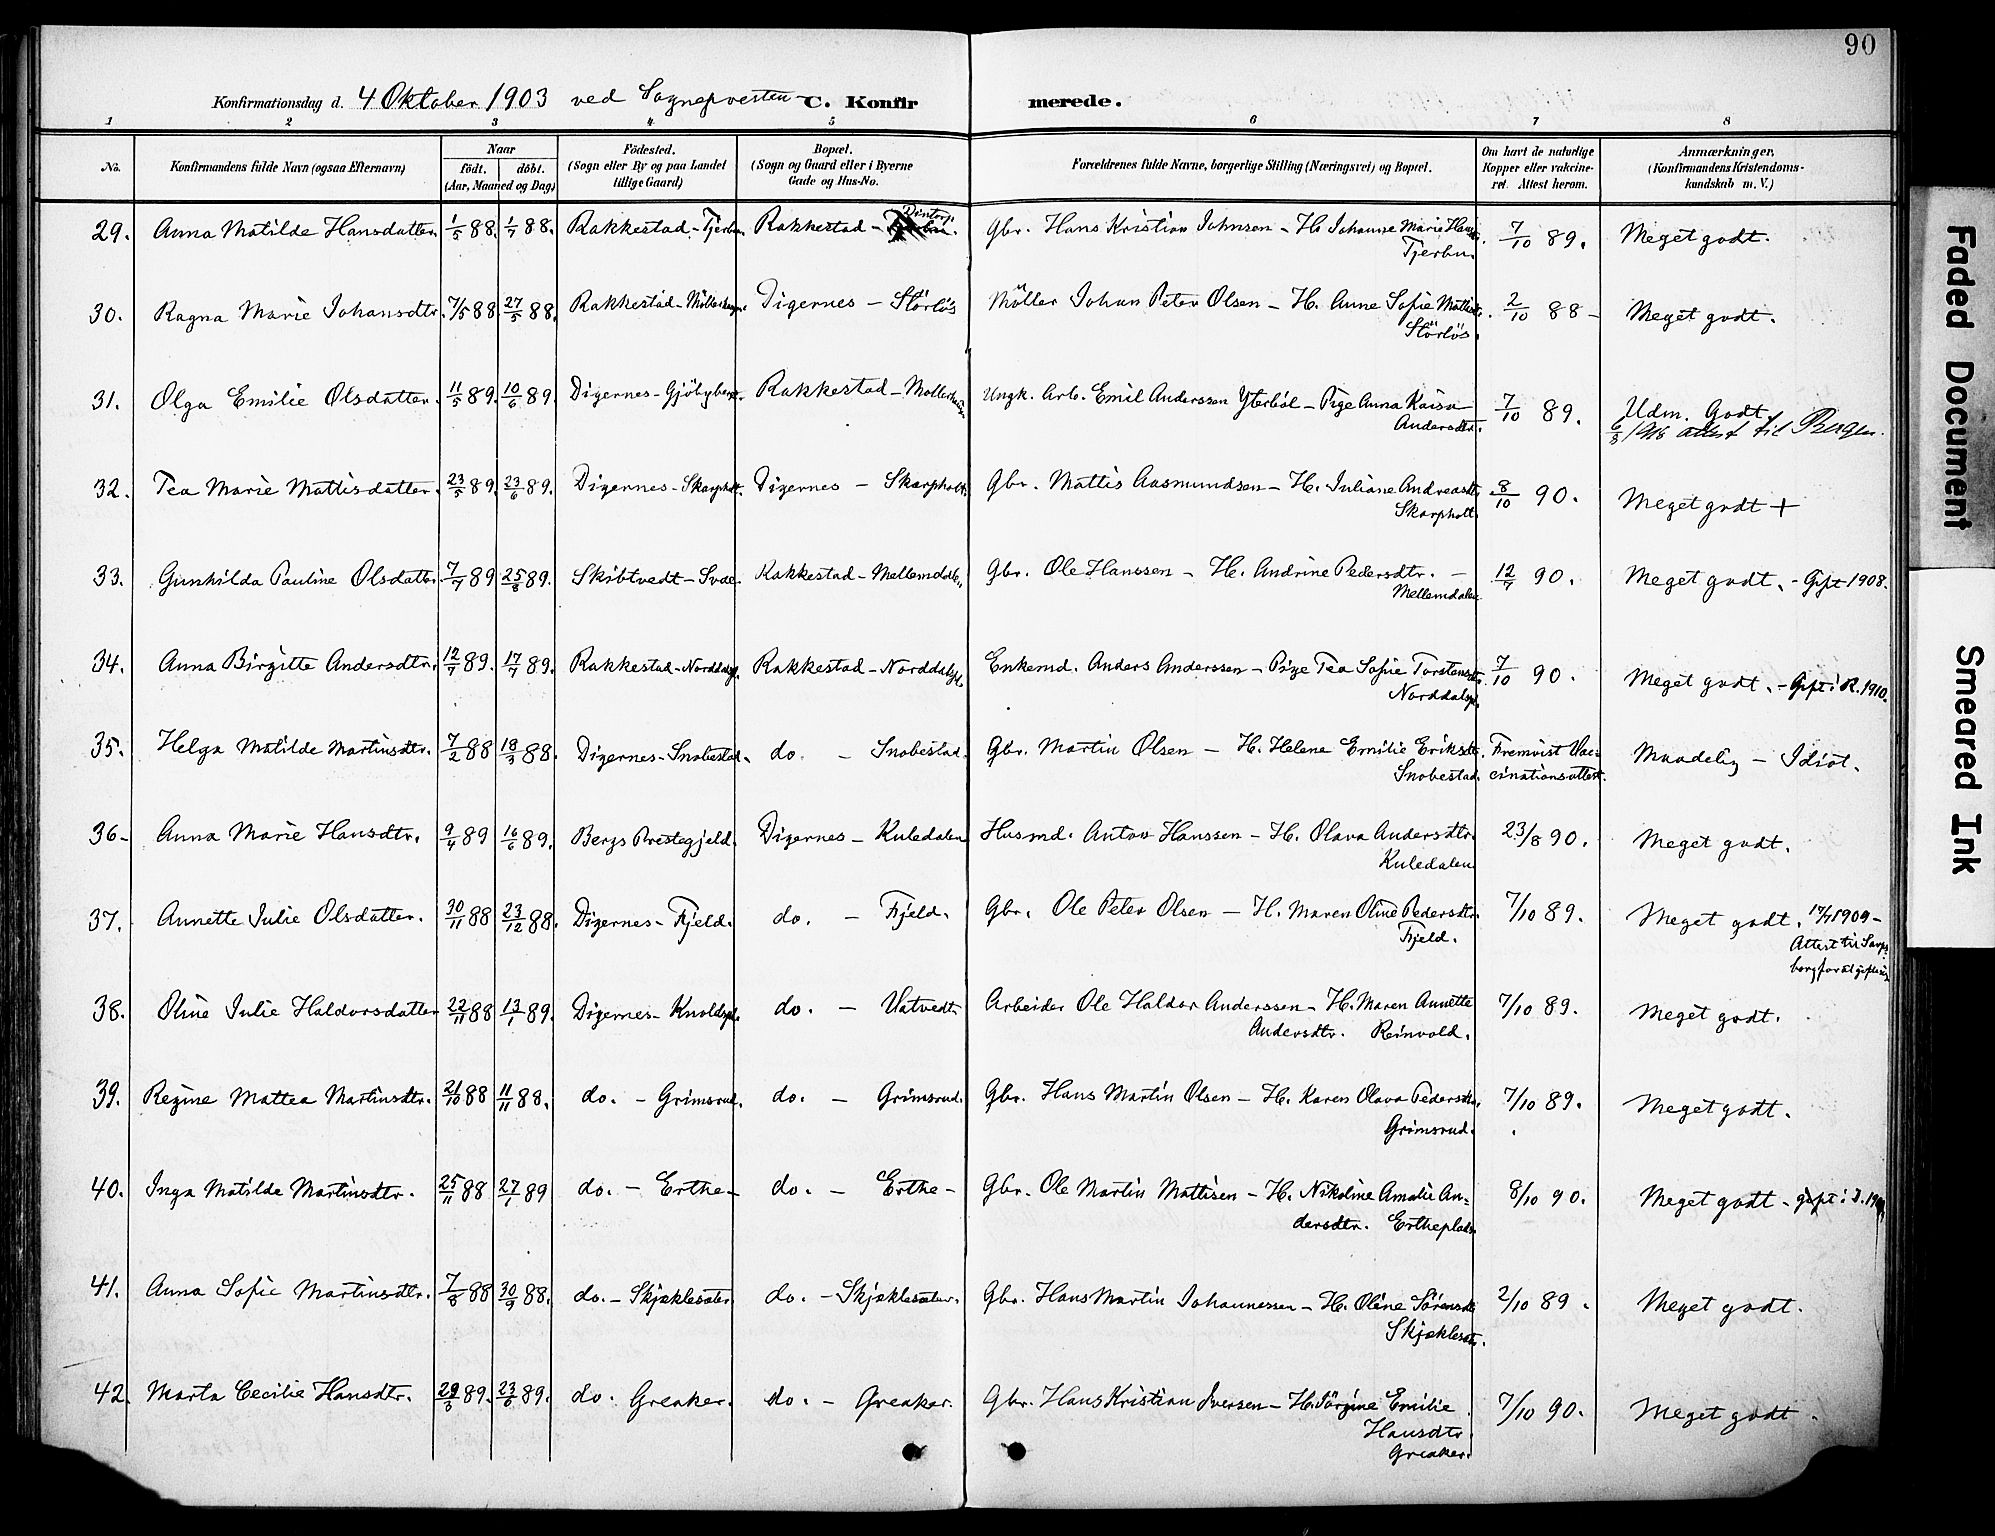 90
Konfirmationsdag d. 4 Oktober 1903 ved Sognepresten C. Konfirmerede.
1 2 3 4 5 6 7 8
No. Konfirmandens fulde Navn (ogsaa Efternavn) Naar født. døbt. (Aar, Maaned og Dag) Fødested. (Sogn eller By og paa Landet tillige Gaard) Bopæl. (Sogn og Gaard eller i Byerne Gade og Hus-No. Forældrenes fulde Navne, borgerlige Stilling (Næringsvei) og Bopæl. Om havt de naturlige Kopper eller vakcineret. Attest herom. Anmærkninger, (Konfirmandens Kristendomskundskab m. V.)
29. Anna Matilde Hansdatter. 1/5 88. 1/7 88. Rakkestad - Tjerbu. Rakkestad - Gbr. Hans Kristian Johnsen - H. Johanne Marie Hansd. 7/10 89. Meget godt.
Tjerbu.
30. Ragna Marie Johansdtr. 7/5 88. 27/5 88. Rakkestad - Digernes - Störlös Möller Johan Peter Olsen - H. Anne Sofie 2/10 88 - Meget godt.
Störlös.
31. Olga Emilie Olsdatter. 11/5 89. 10/6 89. Digernes - Rakkestad - Ungk. Arb. Emil Anderssen Yterböl - Pige Anna Kaisa 7/10 89. Udm. Godt.
Andersdtr. attest til Bergen.
32. Tea Marie Mattisdatter. 23/5 89. 23/6 89. Digernes - Skarpholt. Digernes - Skarpholt. Gbr. Mattis Aasmundsen - H. Juliane Andreasdtr. 8/10 90. Meget godt +
Skarpholt.
33. Gunhilda Pauline Olsdatter 7/7 89 25/8 89. Skibtvedt - Svae. Rakkestad - Mellemdalen. Gbr. Ole Hanssen - H. Andrine Pedersdtr. - 12/7 90. Meget godt. - Gift 1908.
Mellemdalen.
34. Anna Birgitte Andersdtr. 12/7 89. 17/7 89. Rakkestad - Norddalspl. Rakkestad - Norddalspl. Enkemd. Anders Anderssen - Pige Tea Sofie Torstensdtr. 7/10 90. Meget godt. - Gift i R. 1910.
Norddalspl.
35. Helga Matilde Martinsdtr. 7/2 88 18/3 88. Digernes - Snobestad. do. - Snobestad. Gbr. Martin Olsen - H. Helene Emilie Eriksdtr. Fremvist Vac- Maadelig - Idiot.
Snobestad. cinationsattest.
36. Anna Marie Hansdtr. 9/4 89 16/6 89. Bergs Prestegjeld. Digernes - Kuledalen Husmd. Anton Hanssen - H. Olava Andersdtr. 23/8 90. Meget godt.
Kuledalen
37. Annette Julie Olsdatter. 30/11 88 23/12 88. Digernes - Fjeld. do. - Fjeld. Gbr. Ole Peter Olsen - H. Maren Oline Pedersdtr. 7/10 89. Meget godt. 1909 -
Fjeld. Attest til Sarps-
borg for at giftes
38. Oline Julie Haldorsdatter 22/11 88 13/1 89. Digernes - Knoldspl. do. - Vatvedt Arbeider Ole Haldor Anderssen - H. Maren Annette 7/10 89. Meget godt.
Andersdtr. Reinvold.
39. Regine Mattea Martinsdtr. 21/10 88 11/11 88. do. - Grimsrud. do. - Grimsrud. Gbr. Hans Martin Olsen - H. Karen Olava Pedersdtr. 7/10 89. Meget godt.
Grimsrud.
40. Inga Matilde Martinsdtr. 25/11 88 27/1 89 do. - Erthe - do. - Erthe - Gbr. Ole Martin Mattisen - H. Nikoline Amalie An- 8/10 90. Meget godt - gift i D.
dersdtr. Ertheplads.
41. Anna Sofie Martinsdtr. 7/8 88 30/9 88. do. - Skjæklesæter. do. - Skjæklesæter. Gbr. Hans Martin Johannessen - H. Oline Sörensdtr. 2/10 89. Meget godt.
Skjæklesætr.
42. Marta Cecilie Hansdtr. 89. 23/6 89. do. Greaker. do. - Greaker. Gbr. Hans Kristian Iversen - H. Jörgine Emilie 7/10 90. Meget godt.
Hansdtr.
Greaker.
Faded Document
Smeared Ink